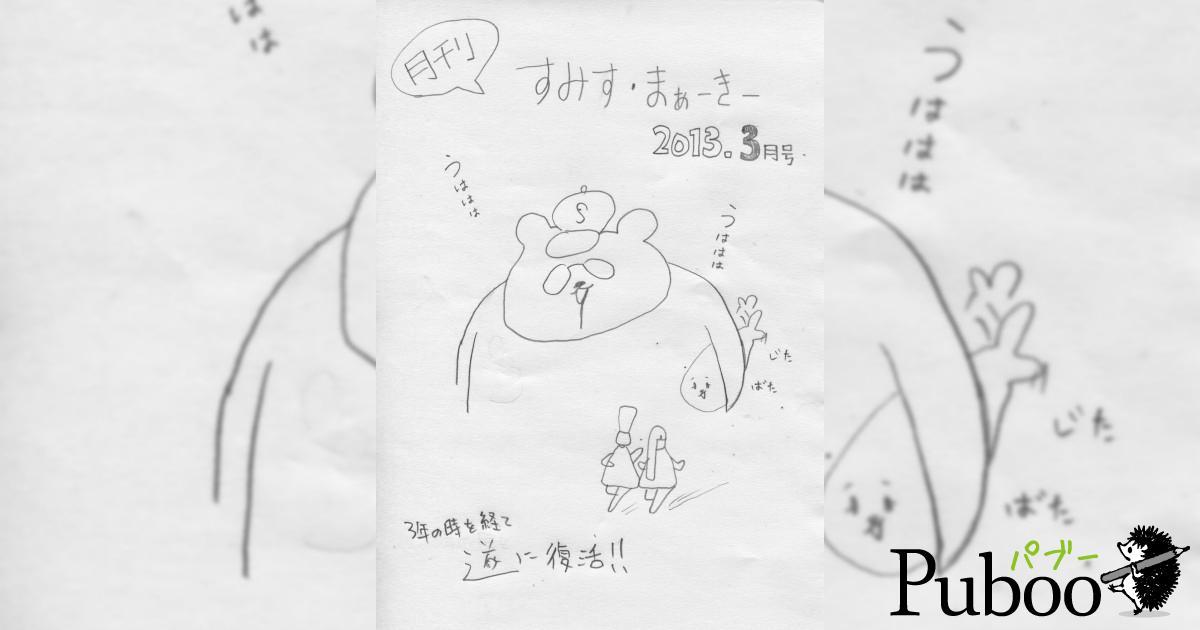 月刊
すみす・まぁーきー
2013.3月号
うははは
うははは
S
じた
ばた
3年の時を経て
遂に復活!!
はは
うははは
じた
ばた
パブー
Puboo